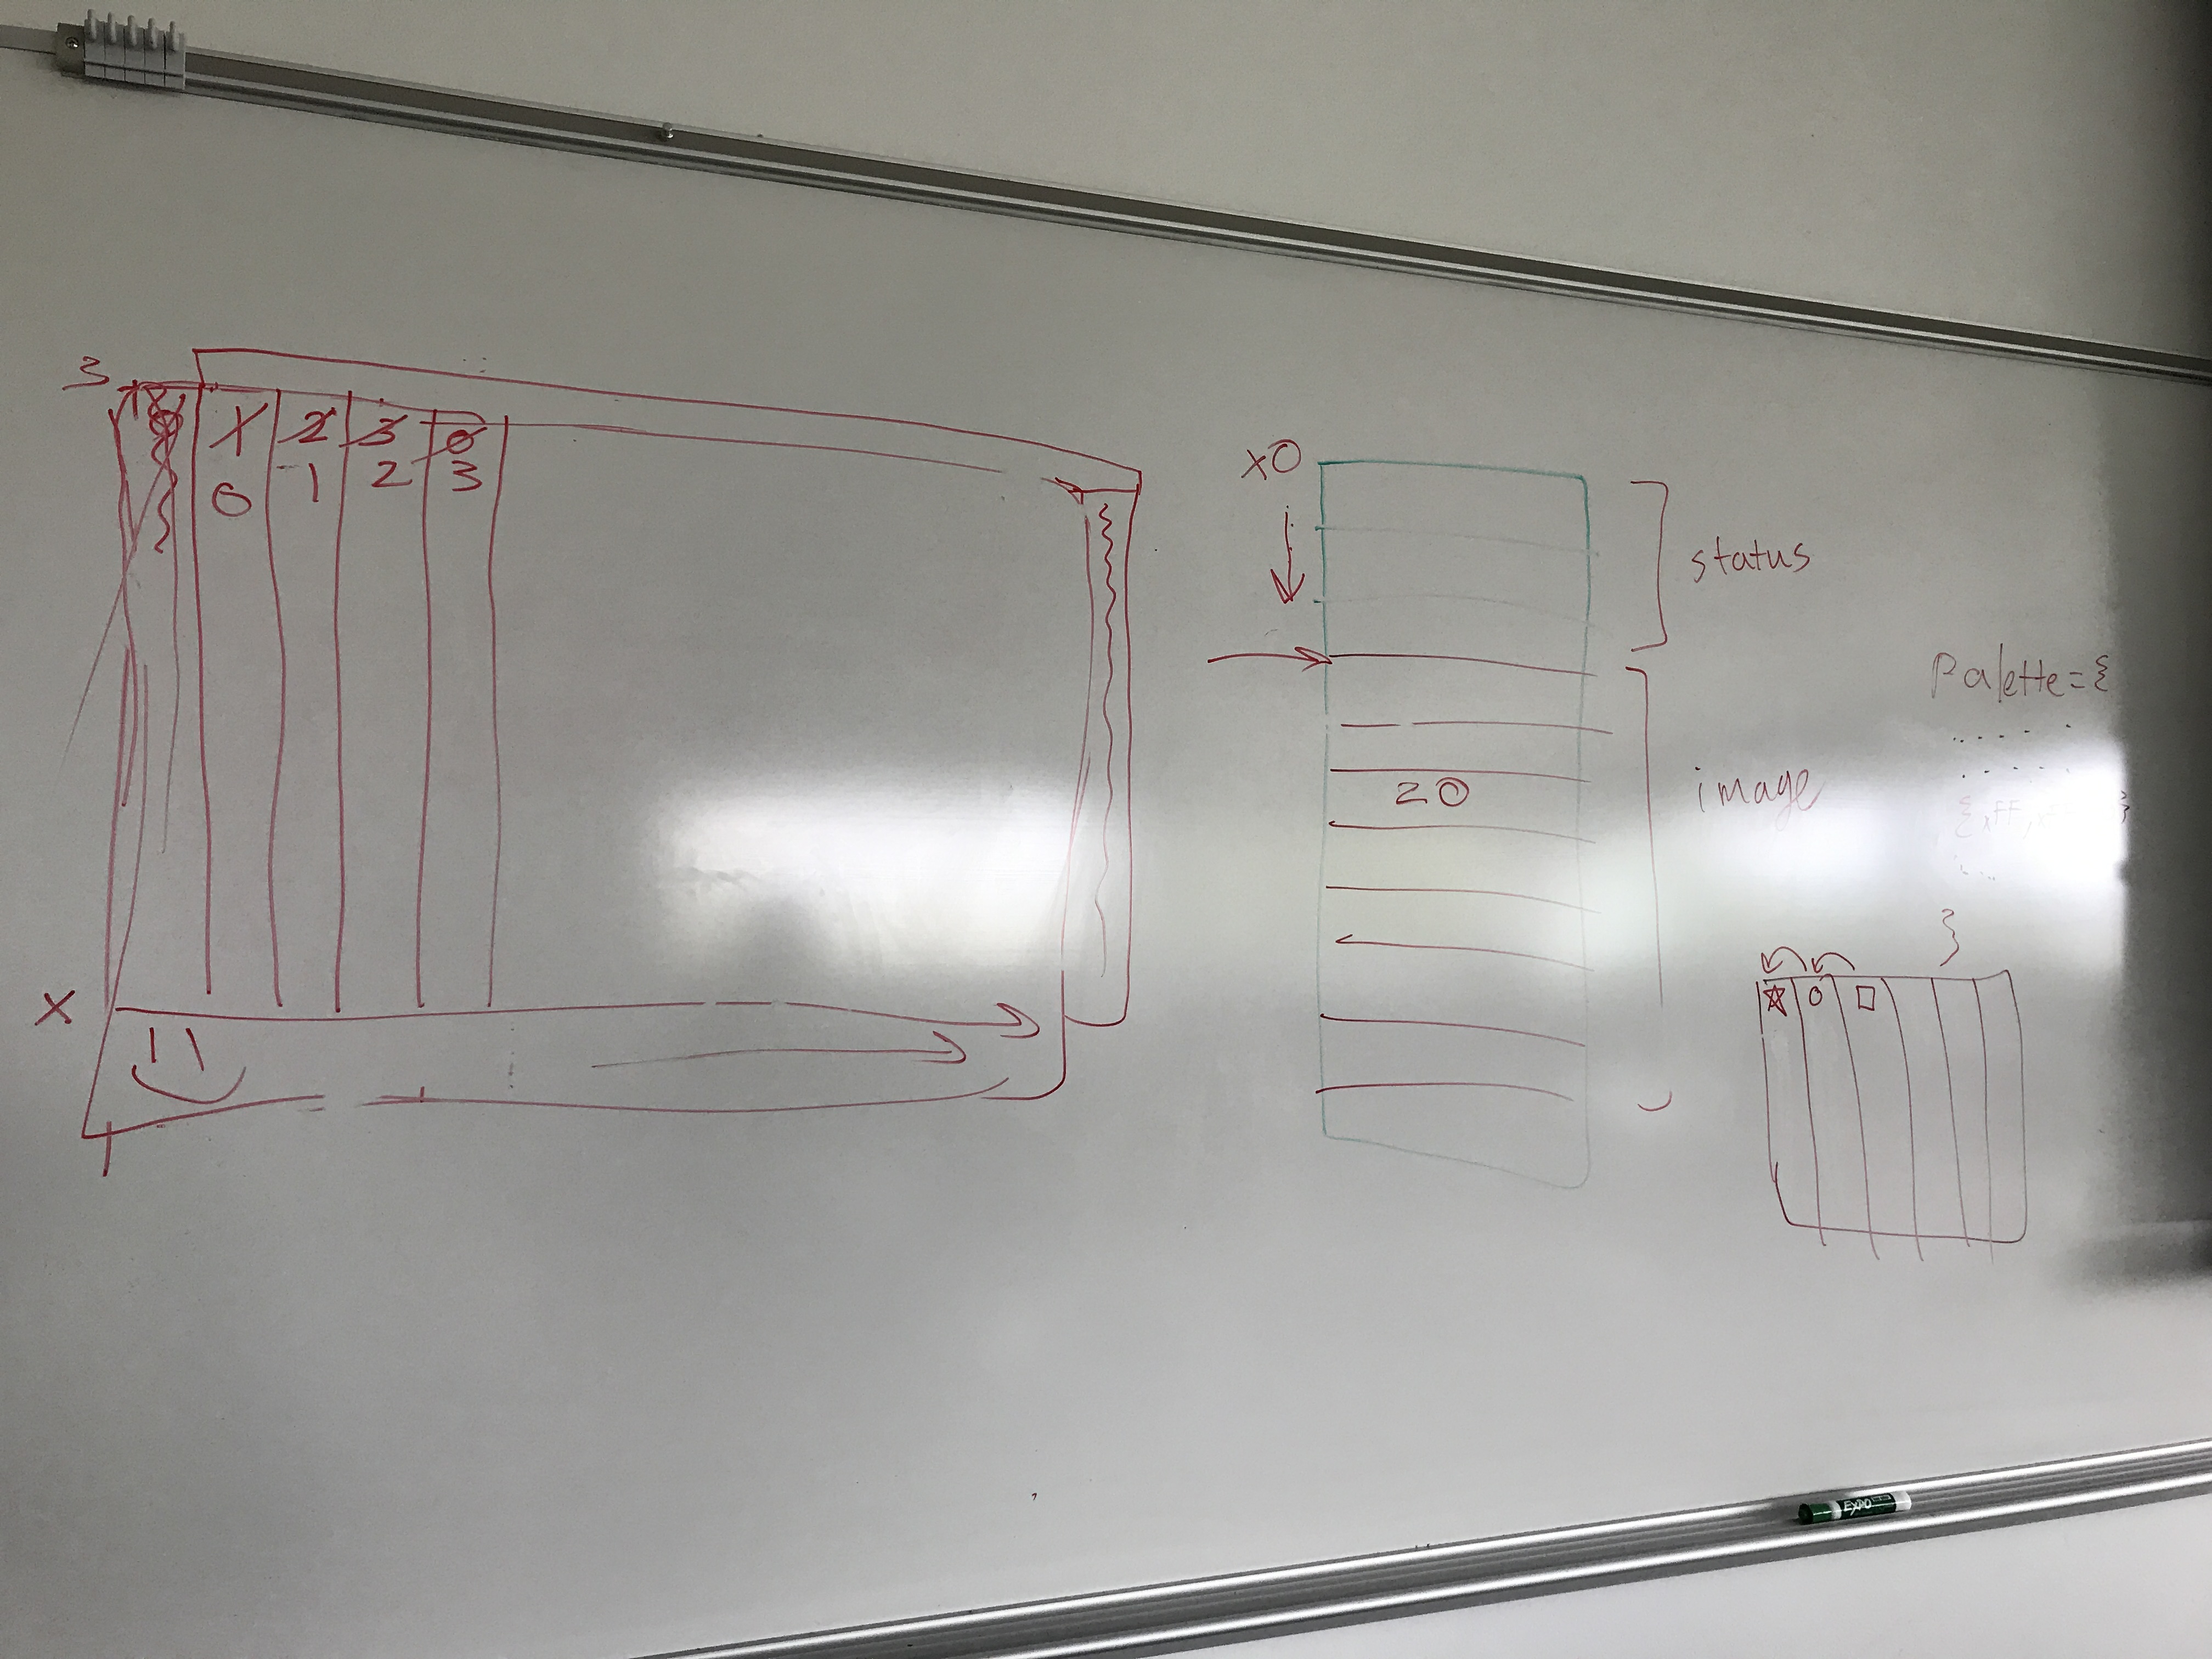 3
1 2 3 0
0 1 2 3
X
x0
status
20
image
Palette={
{xFF,x
}
}
EXPO